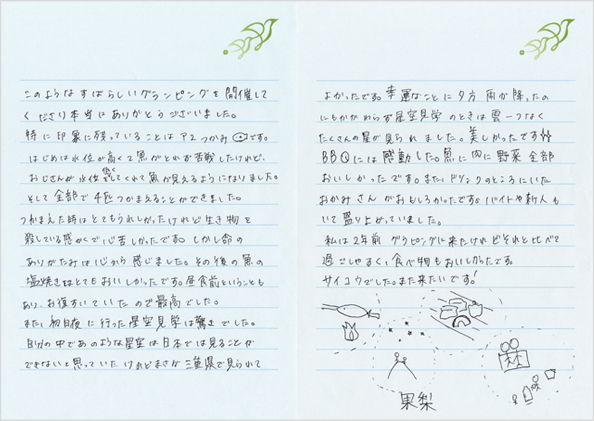 このような すばらしいグランピングを開催して
くださり本当にありがとうございました。
特に印象に残っていることは アユつかみ です。
はじめは水位が高くて魚がとれず苦戦したけれど、
おじさんが水位 低くしてくれて魚が見えるようになりました。
そして全部で4匹つかまえることができました。
つかまえた時はとてもうれしかったけれど生き物を
殺している感かくで心苦しかったです。しかし命の
ありがたみは心から感じました。その後の魚の
塩焼きはとてもおいしかったです。昼食前ということも
あり、お腹すいていたので最高でした。
また、初日夜に行った星空見学は驚きでした。
自分の中であのような星空は日本では見ることが
できないと思っていたけれどまさか三重県で見られて
よかったです。幸運なことに夕方 雨が降ったの
にもかかわらず星空見学のときは雲一つなく
たくさんの星が見られました。美しかったです
BBQには感動した。魚に肉に野菜 全部
おいしかったです。また、ドリンクのところにいた
おかみさん がおもしろかったです。バイトや新人も
いて盛り上がっていました。
私は2年前 グラピングに来たけれどそれと比べて
過ごしやすく、食べ物もおいしかったです。
サイコウでした。また来たいです!
果梨